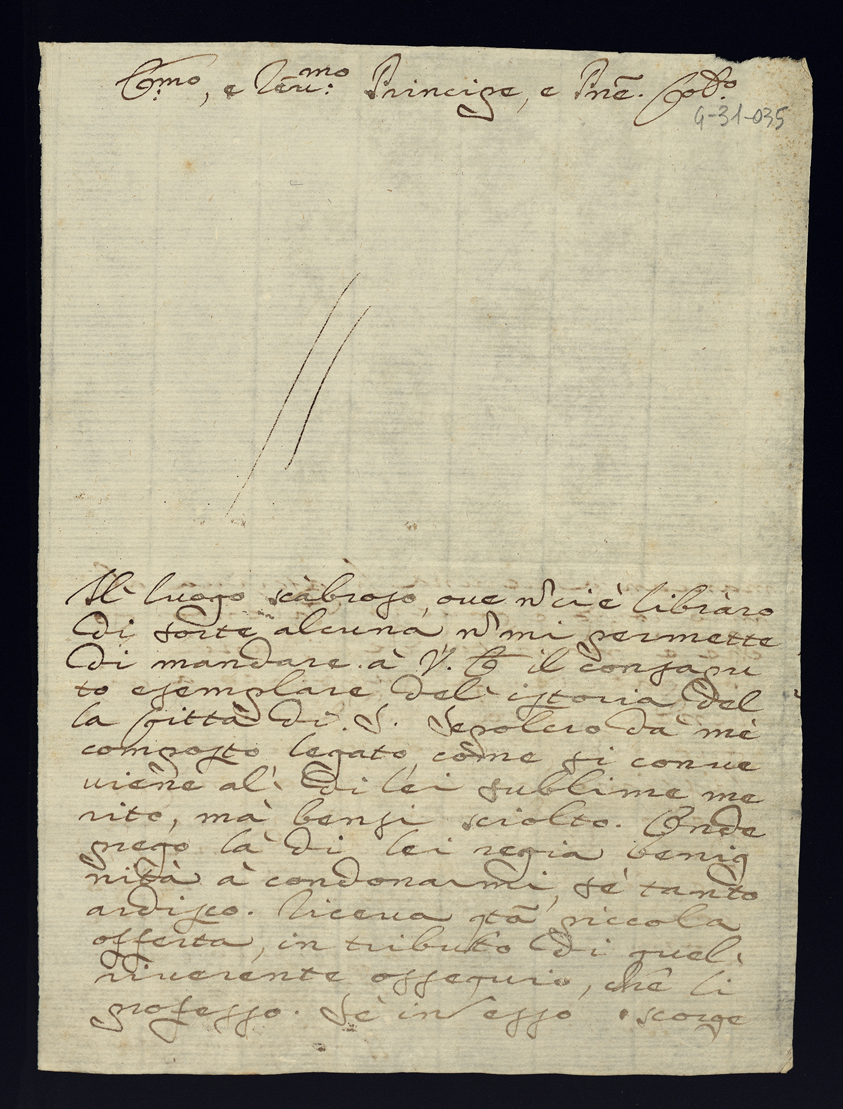 E.mo, e Rev.mo Principe, e Pnē. Col.o
G-31-035
Il luogo scabroso, oue ñ ci è libraro
di sorte alcuna ñ mi permette
di mandare à V. E il consapu
to esemplare del' istoria del
la Città di S. Sepolcro da mè
composto legato, come si conue
uiene al' di lei sublime me
rito, mà bensi sciolto. Onde
prego la di lei regia benig
nità à condonarmi, sè tanto
ardisco. Riceua qtã piccola
offerta, in tributo di quel'
riuerente ossequio, che li
professo. Sè in esso scorge